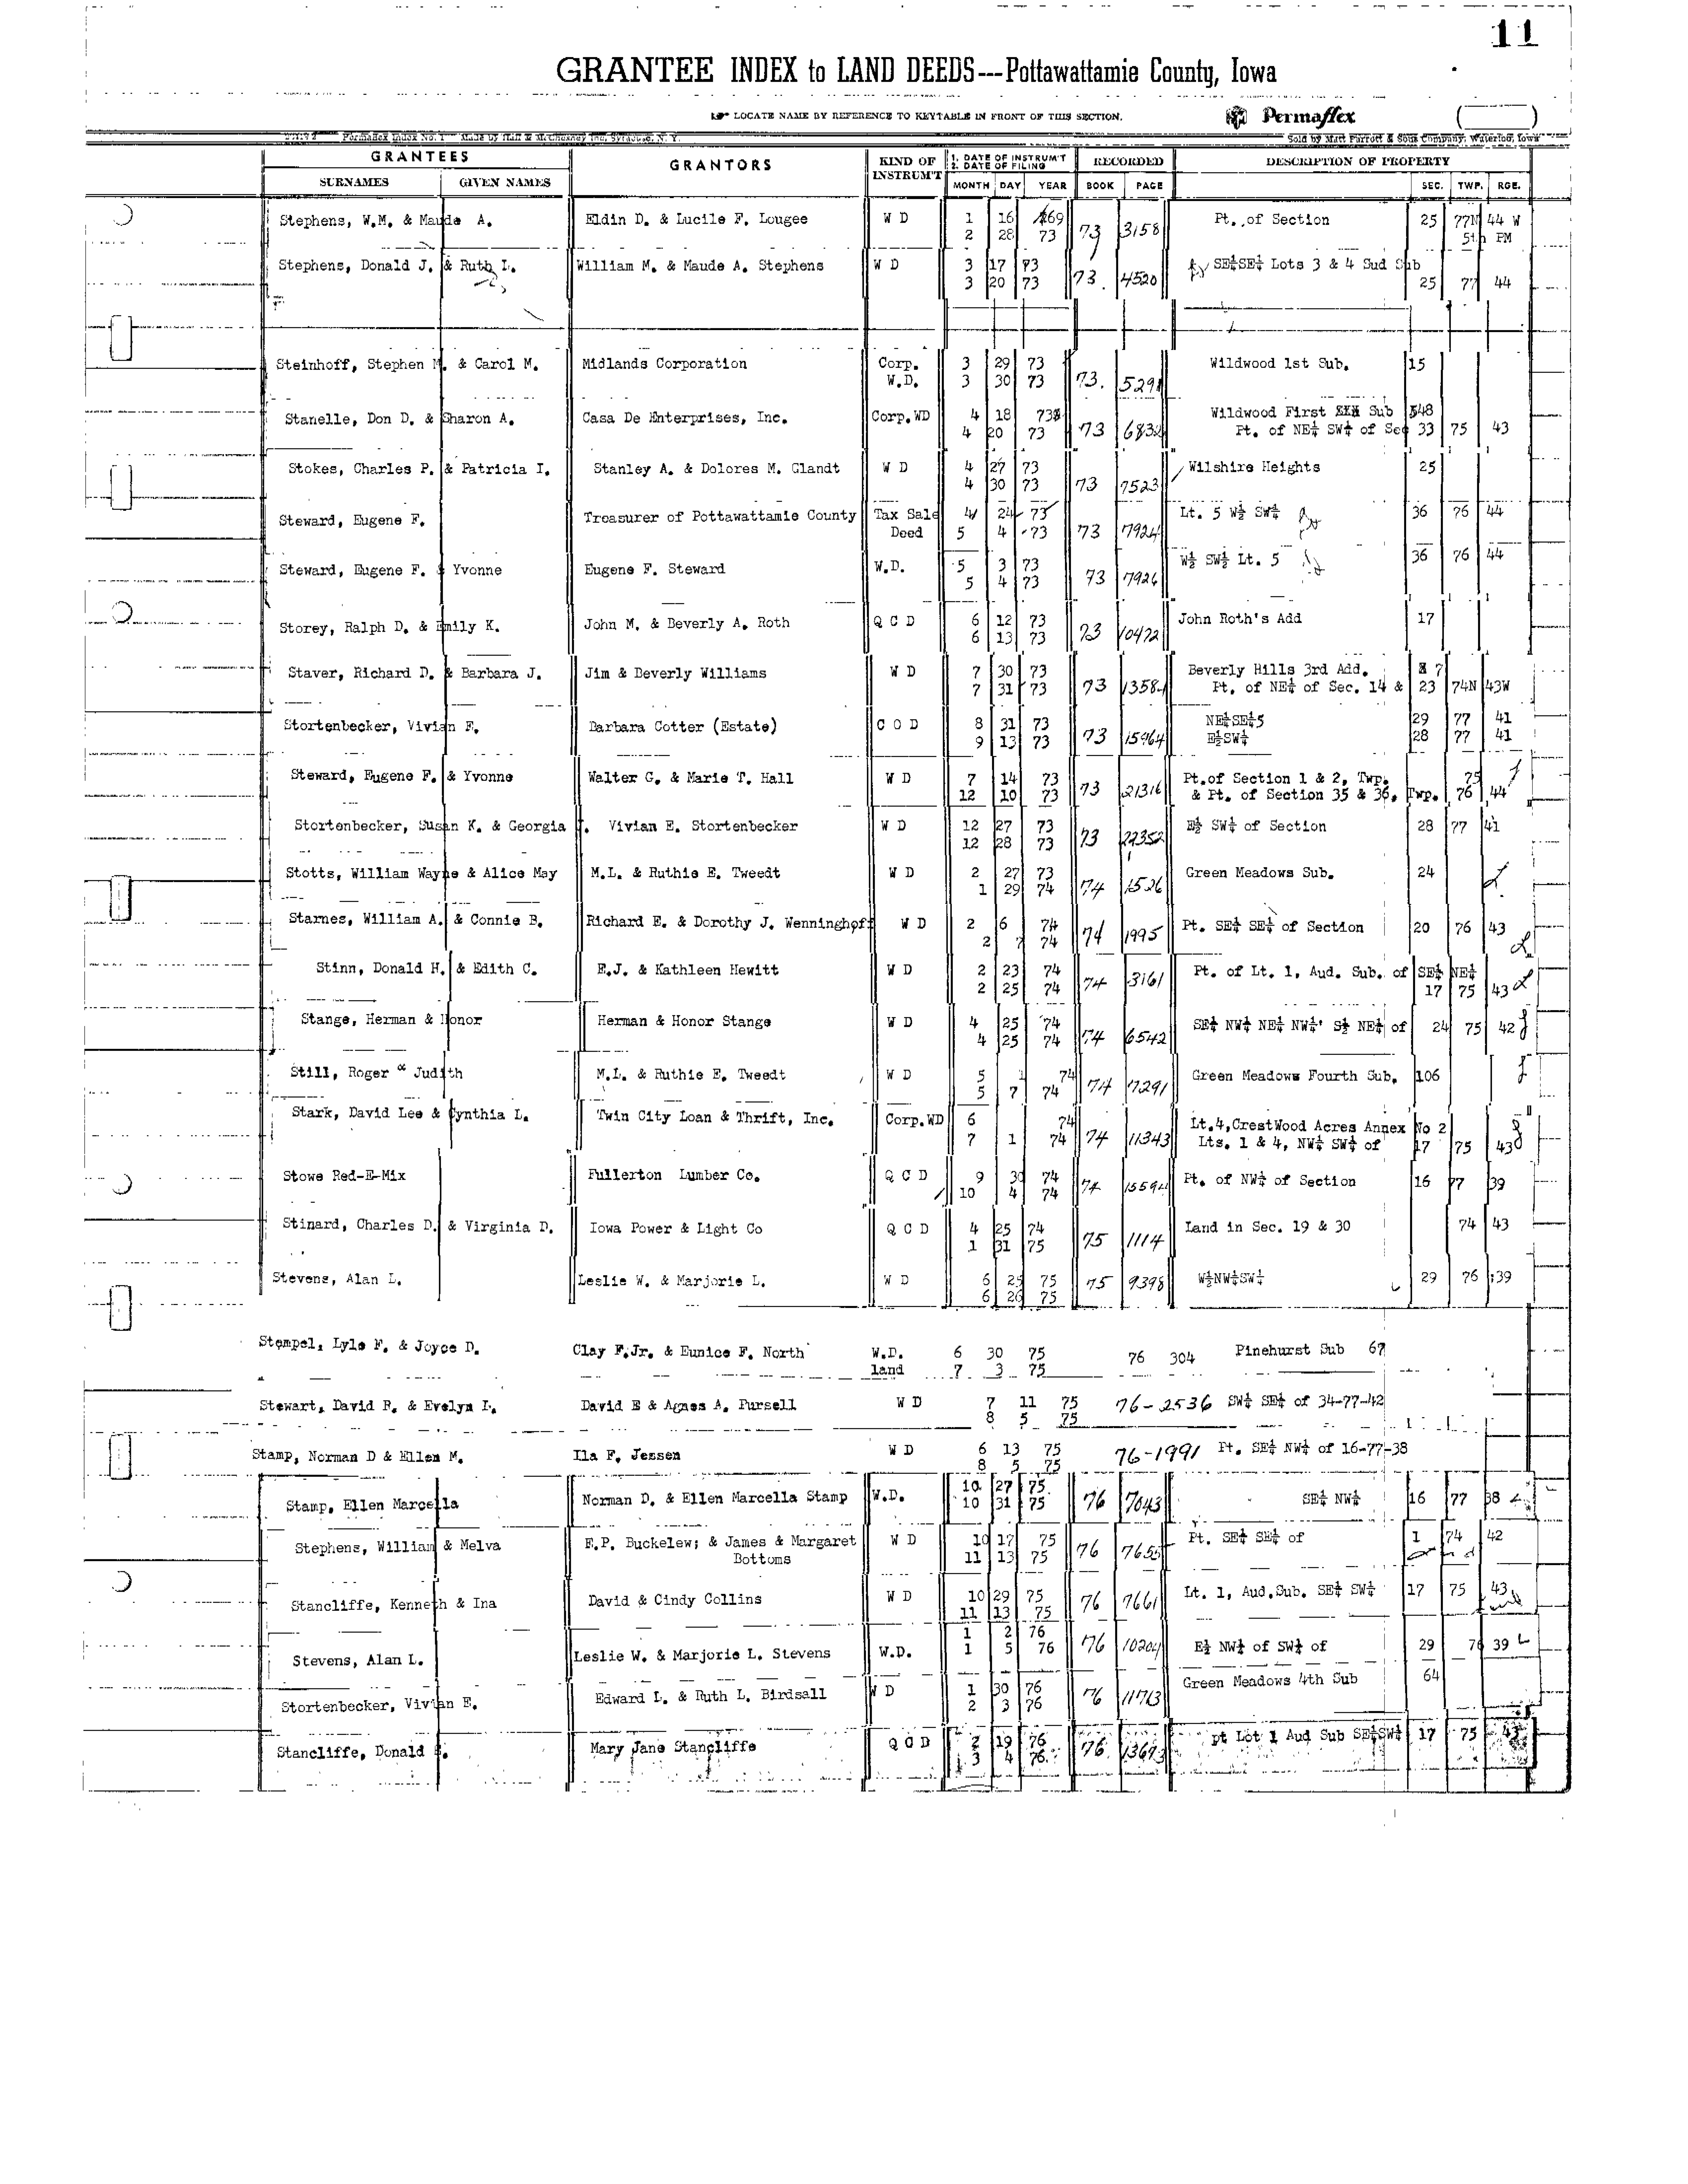 11
GRANTEE INDEX to LAND DEEDS---Pottawattamie County, Iowa
LOCATE NAME BY REFERENCE TO KEYTABLE IN FRONT OF THIS SECTION. Permaflex
Sold by Matt Parrott & Sons Company, Waterloo, Iowa
GRANTEES GRANTORS KIND OF INSTRUM'T 1. DATE OF INSTRUM'T 2. DATE OF FILING RECORDED DESCRIPTION OF PROPERTY
SURNAMES GIVEN NAMES MONTH DAY YEAR BOOK PAGE SEC. TWP. RGE.
Stephens, W.M. & Maude A. Eldin D. & Lucile F. Lougee W D 1 16 69 Pt. of Section 25 77N 44 W
2 28 73 73 3158 5th PM
Stephens, Donald J. & Ruth L. William M. & Maude A. Stephens W D 3 17 73 SE¼SE¼ Lots 3 & 4 Sud Sub
3 20 73 73 4520 25 77 44
Steinhoff, Stephen M. & Carol M. Midlands Corporation Corp. 3 29 73 Wildwood 1st Sub. 15
W.D. 3 30 73 73 5291
Stanelle, Don D. & Sharon A. Casa De Enterprises, Inc. Corp.WD 4 18 73 Wildwood First Sub 548
4 20 73 73 6832 Pt. of NE¼ SW¼ of Sec 33 75 43
Stokes, Charles P. & Patricia I. Stanley A. & Dolores M. Glandt W D 4 27 73 Wilshire Heights 25
4 30 73 73 7523
Steward, Eugene F. Treasurer of Pottawattamie County Tax Sale 4 24 73 Lt. 5 W½ SW¼ 36 76 44
Deed 5 4 73 73 7924
Steward, Eugene F. & Yvonne Eugene F. Steward W.D. 5 3 73 W½ SW¼ Lt. 5 36 76 44
5 4 73 73 7926
Storey, Ralph D. & Emily K. John M. & Beverly A. Roth Q C D 6 12 73 John Roth's Add 17
6 13 73 73 10472
Staver, Richard D. & Barbara J. Jim & Beverly Williams W D 7 30 73 Beverly Hills 3rd Add. 7
7 31 73 73 13584 Pt. of NE¼ of Sec. 14 & 23 74N 43W
Stortenbecker, Vivian E. Barbara Cotter (Estate) C O D 8 31 73 NE¼SE¼5 29 77 41
9 13 73 73 15964 E½SW¼ 28 77 41
Steward, Eugene F. & Yvonne Walter G. & Marie T. Hall W D 7 14 73 Pt.of Section 1 & 2, Twp. 75
12 10 73 73 21316 & Pt. of Section 35 & 36, Twp. 76 44
Stortenbecker, Susan K. & Georgia Vivian E. Stortenbecker W D 12 27 73 E½ SW¼ of Section 28 77 41
12 28 73 73 22352
Stotts, William Wayne & Alice May M.L. & Ruthie E. Tweedt W D 2 27 73 Green Meadows Sub. 24
1 29 74 74 1526
Starnes, William A. & Connie B. Richard E. & Dorothy J. Wenninghoff W D 2 6 74 Pt. SE¼ SE¼ of Section 20 76 43
2 7 74 74 1995
Stinn, Donald H. & Edith C. E.J. & Kathleen Hewitt W D 2 23 74 Pt. of Lt. 1, Aud. Sub. of SE¼ NE¼
2 25 74 74 3161 17 75 43
Stange, Herman & Honor Herman & Honor Stange W D 4 25 74 SE¼ NW¼ NE¼ NW¼' S½ NE¼ of 24 75 42
4 25 74 74 6542
Still, Roger & Judith M.L. & Ruthie E. Tweedt W D 5 74 Green Meadows Fourth Sub. 106
5 7 74 74 7291
Stark, David Lee & Cynthia L. Twin City Loan & Thrift, Inc. Corp.WD 6 74 Lt.4,CrestWood Acres Annex No 2
7 1 74 74 11343 Lts. 1 & 4, NW¼ SW¼ of 17 75 43
Stowe Red-E-Mix Fullerton Lumber Co. Q C D 9 30 74 Pt. of NW¼ of Section 16 77 39
10 4 74 74 15594
Stinard, Charles D. & Virginia D. Iowa Power & Light Co Q C D 4 25 74 Land in Sec. 19 & 30 74 43
1 31 75 75 1114
Stevens, Alan L. Leslie W. & Marjorie L. W D 6 25 75 W½NW¼SW¼ 29 76 39
6 26 75 75 9398
Stempel, Lyle F. & Joyce D. Clay F.Jr. & Eunice F. North W.D. 6 30 75 76 304 Pinehurst Sub 67
land 7 3 75
Stewart, David R. & Evelyn L. David E & Agnes A. Pursell W D 7 11 75 76-2536 SW¼ SE¼ of 34-77-42
8 5 75
Stamp, Norman D & Ellen M. Ila F. Jessen W D 6 13 75 76-1991 Pt. SE¼ NW¼ of 16-77-38
8 5 75
Stamp, Ellen Marcella Norman D. & Ellen Marcella Stamp W.D. 10 27 75 SE¼ NW¼ 16 77 38
10 31 75 76 7043
Stephens, William & Melva E.P. Buckelew; & James & Margaret W D 10 17 75 Pt. SE¼ SE¼ of 1 74 42
Bottoms 11 13 75 76 7655
Stancliffe, Kenneth & Ina David & Cindy Collins W D 10 29 75 Lt. 1, Aud.Sub. SE¼ SW¼ 17 75 43
11 13 75 76 7661
1 2 76
Stevens, Alan L. Leslie W. & Marjorie L. Stevens W.D. 1 5 76 76 10204 E½ NW¼ of SW¼ of 29 76 39
Stortenbecker, Vivian E. Edward L. & Ruth L. Birdsall W D 1 30 76 Green Meadows 4th Sub 64
2 3 76 76 11713
Stancliffe, Donald Mary Jane Stancliffe Q C D 2 19 76 pt Lot 1 Aud Sub SE¼SW¼ 17 75 43
3 4 76 76 13693